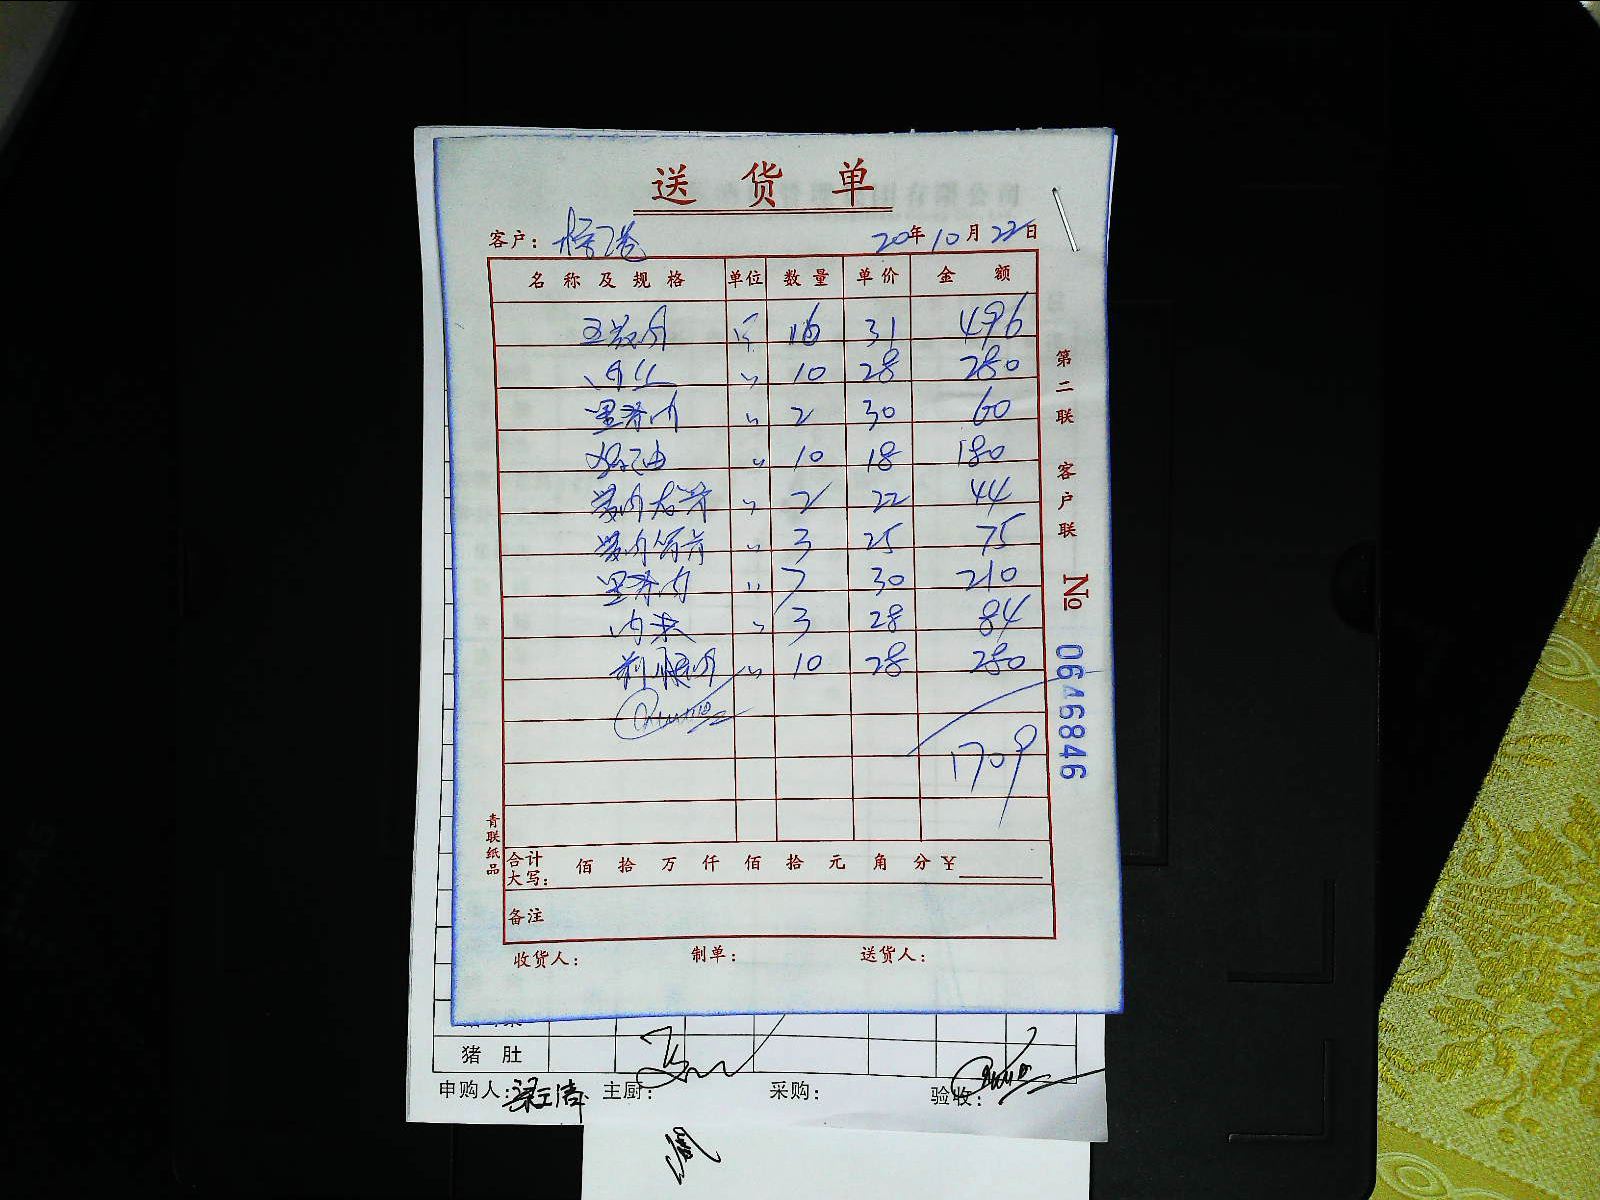 送货单
客户：
20年10月22日
名称及规格 单位 数量 单价 金额
五花肉 斤 16 31 496
肉丝 〃 10 28 280
里脊肉 〃 2 30 60
〃 10 18 180
〃 2 22 44
〃 3 25 75
里脊肉 〃 7 30 210
肉末 〃 3 28 84
〃 10 28 280
1709
合计大写： 佰 拾 万 仟 佰 拾 元 角 分 ¥
备注
收货人： 制单： 送货人：
青联纸品
第二联 客户联
№ 0646846
猪肚
申购人： 主厨： 采购： 验收：